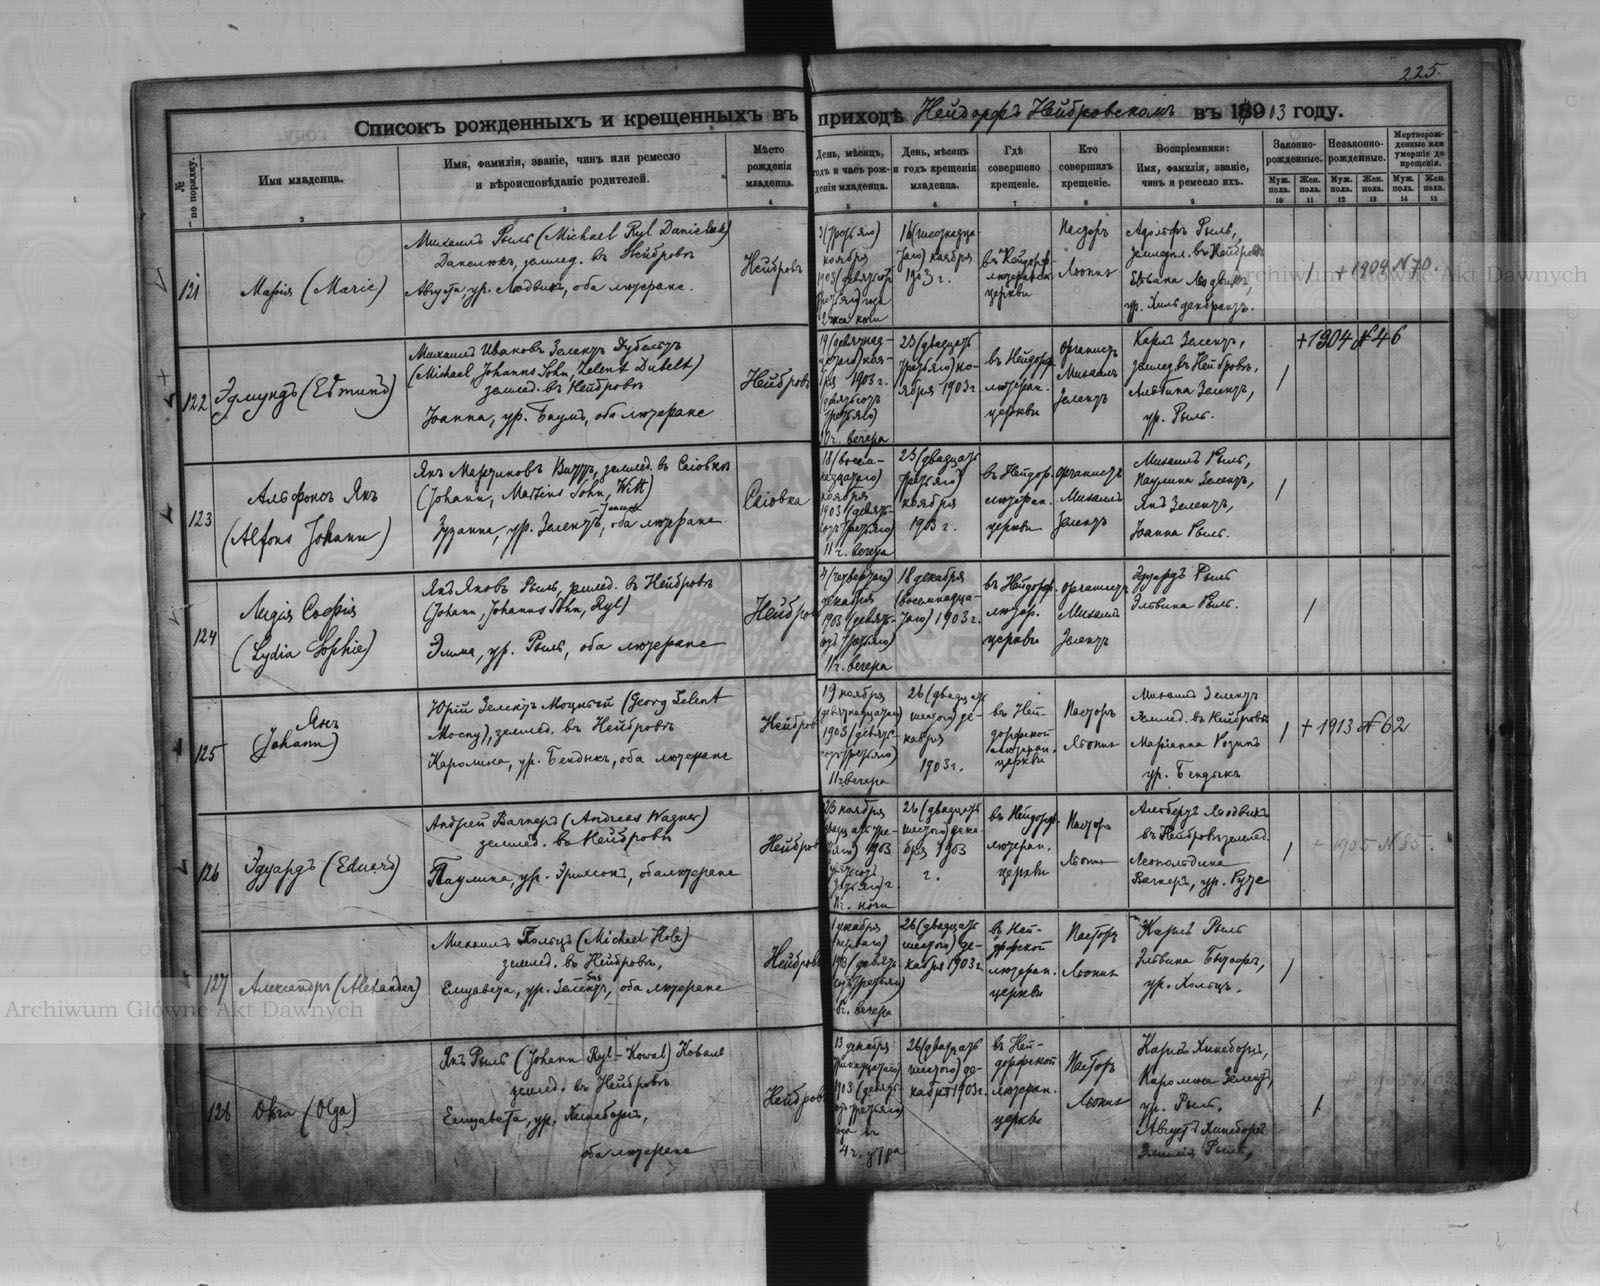 225.
Списокъ рожденныхъ и крещенныхъ въ приходѣ Нейдорфъ Нейбровскомъ въ 1903 году.
№ по порядку.
Имя младенца.
Имя, фамилія, званіе, чинъ или ремесло
и вѣроисповѣданіе родителей.
Мѣсто
рожденія
младенца.
День, мѣсяцъ,
годъ и часъ рож-
денія младенца.
День, мѣсяцъ
и годъ крещенія
младенца.
Гдѣ
совершено
крещеніе.
Кто
совершилъ
крещеніе.
Воспріемники:
Имя, фамилія, званіе,
чинъ и ремесло ихъ.
Законно-
рожденные.
Незаконно-
рожденные.
Мертворож-
денные или
умершіе до
крещенія.
Муж. пола.
Жен. пола.
Муж. пола.
Жен. пола.
Муж. пола.
Жен. пола.
1 2 3 4 5 6 7 8 9 10 11 12 13 14 15
121
Марія (Marie)
Михаилъ Рыль (Michael Ryl Danieluk)
Данелюкъ, землед. въ Нейбровѣ
Августа, ур. Людвикъ, оба лютеране.
Нейбровъ
3 (третьяго)
ноября
1903 (девятсотъ
третьяго) года
2 часа ночи
16 (шестнадца-
таго) ноября
1903 г.
въ Нейдорф.
лютеранск.
церкви
Пасторъ
Адольфъ Рыль,
ур. Хильдебрандъ.
1
+ 1904 N 70.
122
Эдмундъ (Edmund)
Михаилъ Ивановъ Зелентъ Дубельтъ
(Michael, Johanns Sohn, Zelent Dubelt)
землед. въ Нейбровѣ
Іоанна, ур. Баумъ, оба лютеране
Нейбровъ
19 (девятнад-
цатаго) ноя-
бря 1903 г.
(девятьсотъ
третьяго)
10 ч. вечера
23 (двадцать
третьяго) но-
ября 1903 г.
въ Нейдорф.
лютеран.
церкви
Органистъ
Михаилъ
Зелентъ
Карлъ Зелентъ,
землед. въ Нейбровѣ,
Альвина Зелентъ,
ур. Рыль.
1
+ 1904 N 46
123
Альфонсъ Янъ
(Alfons Johann)
Янъ Мартиновъ Виттъ, землед. въ Сіовкѣ
(Johann, Martins Sohn, Witt)
Зузанна, ур. Зелентъ, оба лютеране
18 (восем-
надцатаго)
ноября
1903 (девять-
сотъ третьяго)
11 ч. вечера
23 (двадцать
третьяго)
ноября
1903 г.
въ Нейдор.
лютеран.
церкви
Органистъ
Михаилъ
Зелентъ
Михаилъ Рыль,
Паулина Зелентъ,
Янъ Зелентъ,
Іоанна Рыль.
1
124
Лидія Софія
(Lydia Sophie)
Янъ Яновъ Рыль, землед. въ Нейбровѣ
(Johann, Johanns Sohn, Ryl)
Эмма, ур. Рыль, оба лютеране
Нейбровъ
4 (четвертаго)
декабря
1903 (девять-
сотъ третьяго)
11 ч. вечера
18 декабря
(восемнадца-
таго) 1903 г.
въ Нейдорф.
лютер.
церкви
Органистъ
Михаилъ
Зелентъ
Эдуардъ Рыль
Эльвина Рыль.
1
125
Янъ
(Johann)
Юрій Зелентъ Моцный (Georg Zelent
Mocny), землед. въ Нейбровѣ
Каролина, ур. Бендыкъ, оба лютеране
Нейбровъ
19 ноября
(девятнадцатаго)
1903 (девять-
сотъ третьяго)
11 ч. вечера
26 (двадцать
шестого) де-
кабря
1903 г.
въ Ней-
дорфской
лютеран.
церкви
Пасторъ
Михаилъ Зелентъ
землед. въ Нейбровѣ
Маріанна
ур. Бендыкъ
1
+ 1913 N 62
126
Эдуардъ (Eduard)
Андрей Вагнеръ (Andreas Wagner)
землед. въ Нейбровѣ
Паулина, ур. Эриксонъ, оба лютеране
Нейбровъ
23 ноября
1903
26 (двадцать
шестого) дека-
бря 1903
г.
въ Нейдорф.
лютеран.
церкви
Пасторъ
Альбертъ Людвикъ
въ Нейбровѣ землед.
Леопольдина
Вагнеръ, ур.
1
+ 1905 N 85.
127
Александръ (Alexander)
Михаилъ Гольцъ (Michael Holz)
землед. въ Нейбровѣ,
Елизавета, ур. Зелентъ, оба лютеране
Нейбровъ
1 декабря
(перваго)
6 ч. вечера
26 (двадцать
шестого) де-
кабря 1903 г.
въ Ней-
дорфской
лютеран.
церкви
Пасторъ
Карлъ Рыль
Эльвина
ур. Хольцъ.
1
128
Ольга (Olga)
Янъ Рыль (Johann Ryl-Kowal) Коваль
землед. въ Нейбровѣ
Елизавета, ур. Хинеборгъ,
оба лютеране
Нейбровъ
13 декабря
(тринадцатаго)
1903 (девять-
сотъ третьяго)
года въ
4 ч. утра
26 (двадцать
шестого) де-
кабря 1903 г.
въ Ней-
дорфской
лютеран.
церкви
Пасторъ
Карлъ Хинеборгъ,
Каролина Зелентъ,
ур. Рыль,
Августъ Хинеборгъ
Эмилія Рыль,
1
Archiwum Główne Akt Dawnych
Archiwum Główne Akt Dawnych